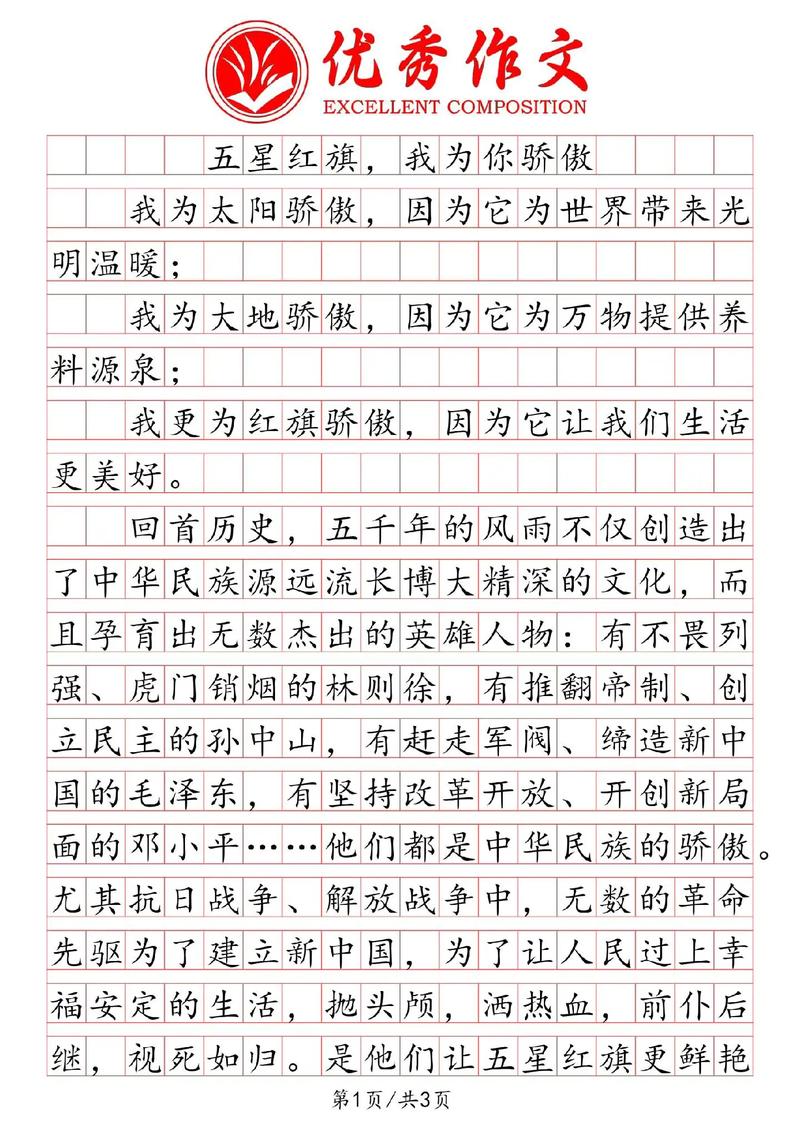 优秀作文
EXCELLENT COMPOSITION
五星红旗，我为你骄傲
我为太阳骄傲，因为它为世界带来光
明温暖；
我为大地骄傲，因为它为万物提供养
料源泉；
我更为红旗骄傲，因为它让我们生活
更美好。
回首历史，五千年的风雨不仅创造出
了中华民族源远流长博大精深的文化，而
且孕育出无数杰出的英雄人物：有不畏列
强、虎门销烟的林则徐，有推翻帝制、创
立民主的孙中山，有赶走军阀、缔造新中
国的毛泽东，有坚持改革开放、开创新局
面的邓小平……他们都是中华民族的骄傲。
尤其抗日战争、解放战争中，无数的革命
先驱为了建立新中国，为了让人民过上幸
福安定的生活，抛头颅，洒热血，前仆后
继，视死如归。是他们让五星红旗更鲜艳
第1页/共3页